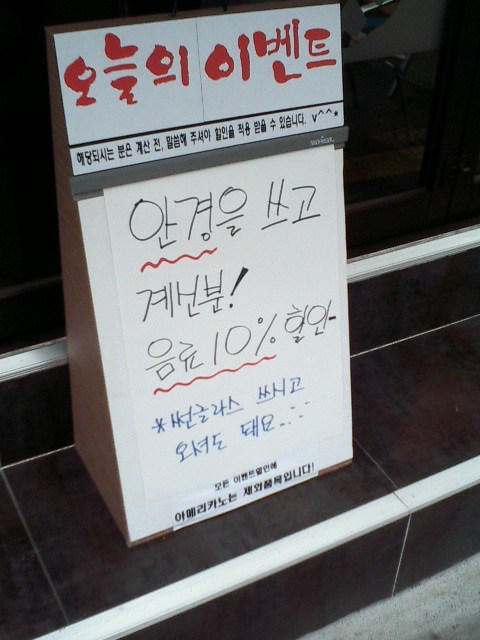 오늘의 이벤트
해당되시는 분은 계산 전, 말씀해 주셔야 할인을 적용 받을 수 있습니다. v^^*
안경을 쓰고
계신분!
음료 10% 할인
*썬글라스 쓰시고
오셔도 돼요...
모든 이벤트할인에
아메리카노는 제외품목입니다!